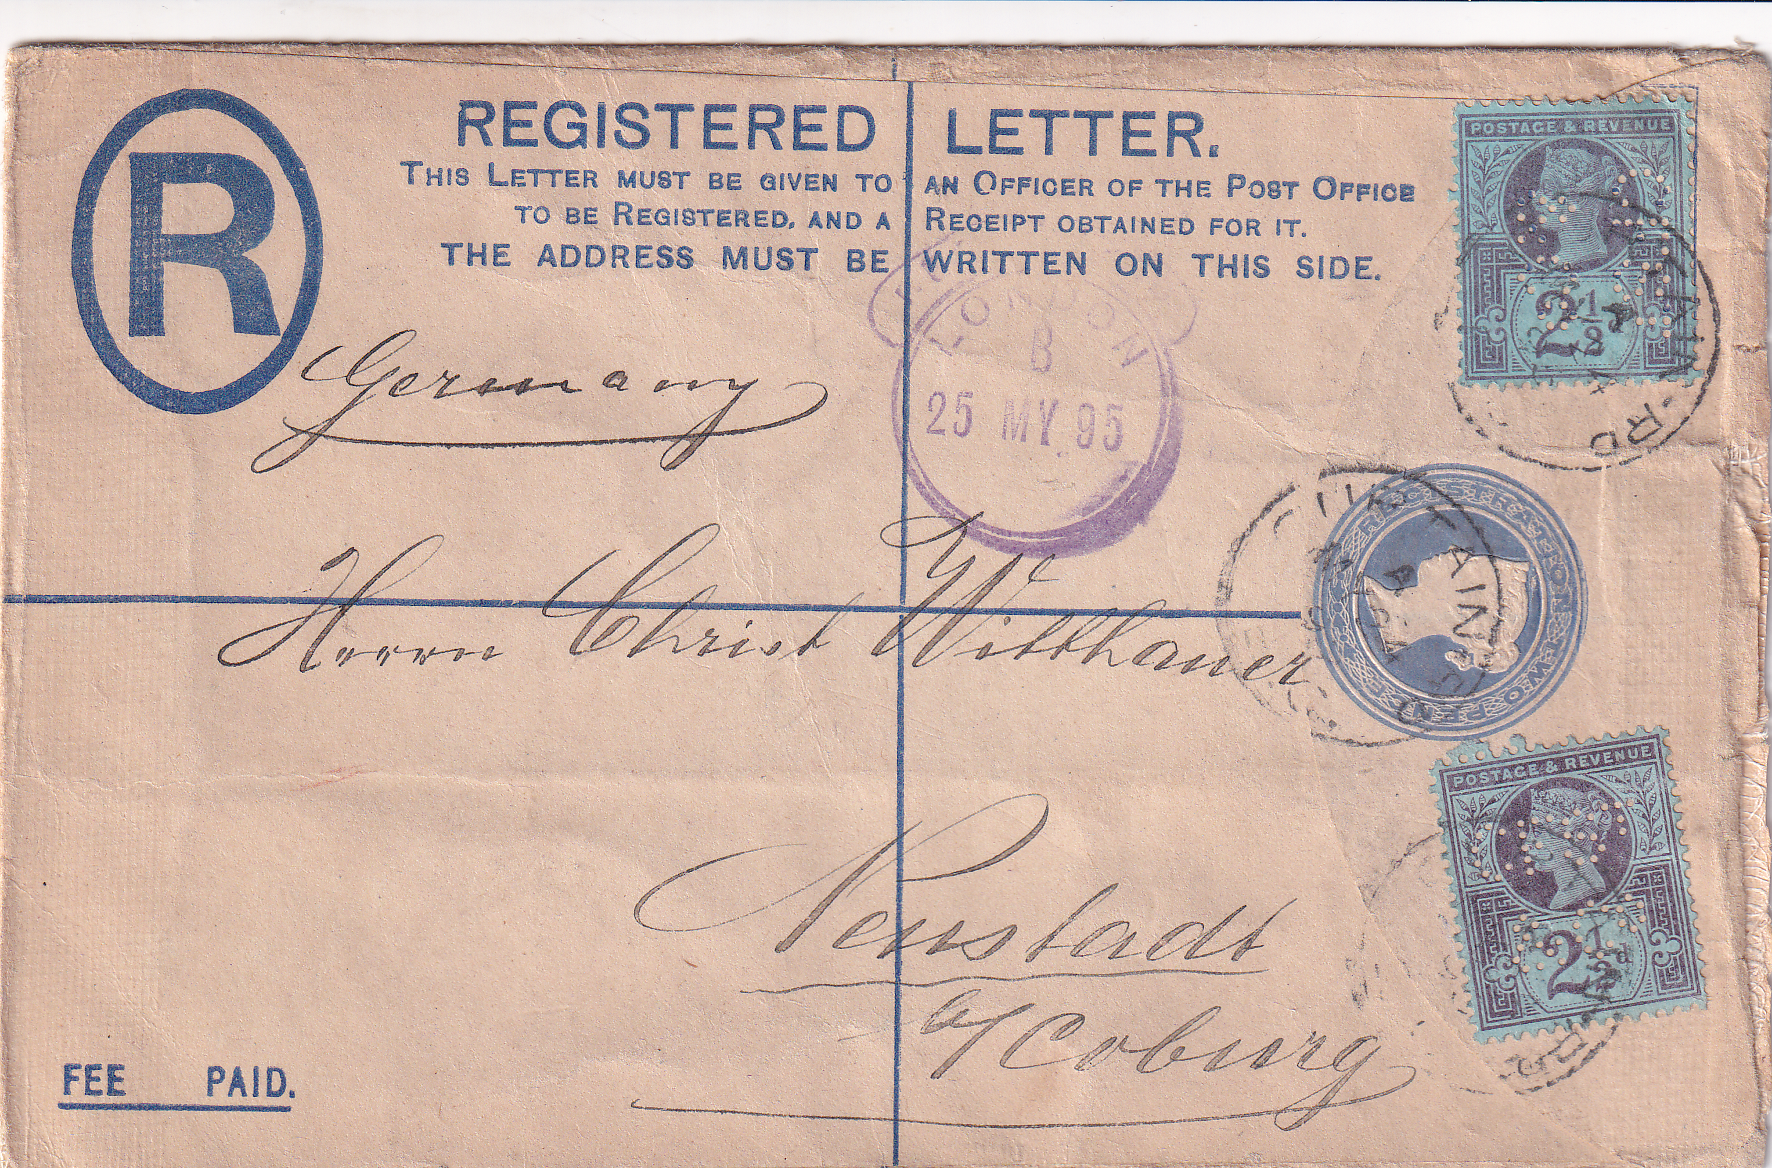 R
REGISTERED LETTER.
THIS LETTER MUST BE GIVEN TO AN OFFICER OF THE POST OFFICE
TO BE REGISTERED, AND A RECEIPT OBTAINED FOR IT.
THE ADDRESS MUST BE WRITTEN ON THIS SIDE.
POSTAGE & REVENUE
2½d
LONDON
B
25 MY 95
Germany
CURTAIN RD
A
Herrn Christ Witthauer
POSTAGE & REVENUE
2½d
Neustadt
b/Coburg
FEE PAID.